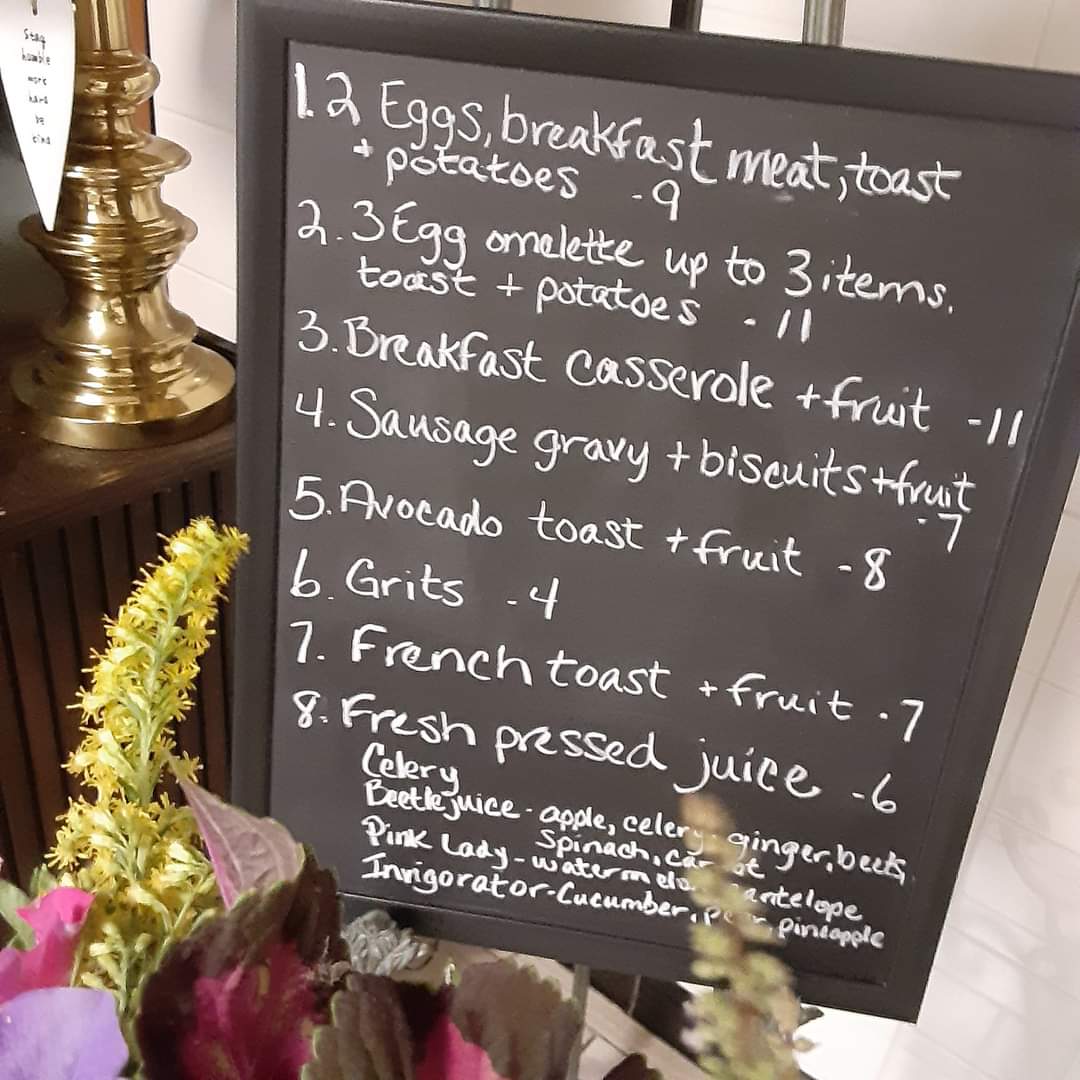 Stay
humble
work
hard
be
kind
1. 2 Eggs, breakfast meat, toast
+ potatoes -9
2. 3 Egg omelette up to 3 items.
toast + potatoes - 11
3. Breakfast casserole + fruit -11
4. Sausage gravy + biscuits + fruit
- 7
5. Avocado toast + fruit - 8
6. Grits - 4
7. French toast + fruit - 7
8. Fresh pressed juice - 6
Celery
Beetlejuice - apple, celery, ginger, beets,
Spinach,
Pink Lady -
Invigorator - Cucumber, pineapple